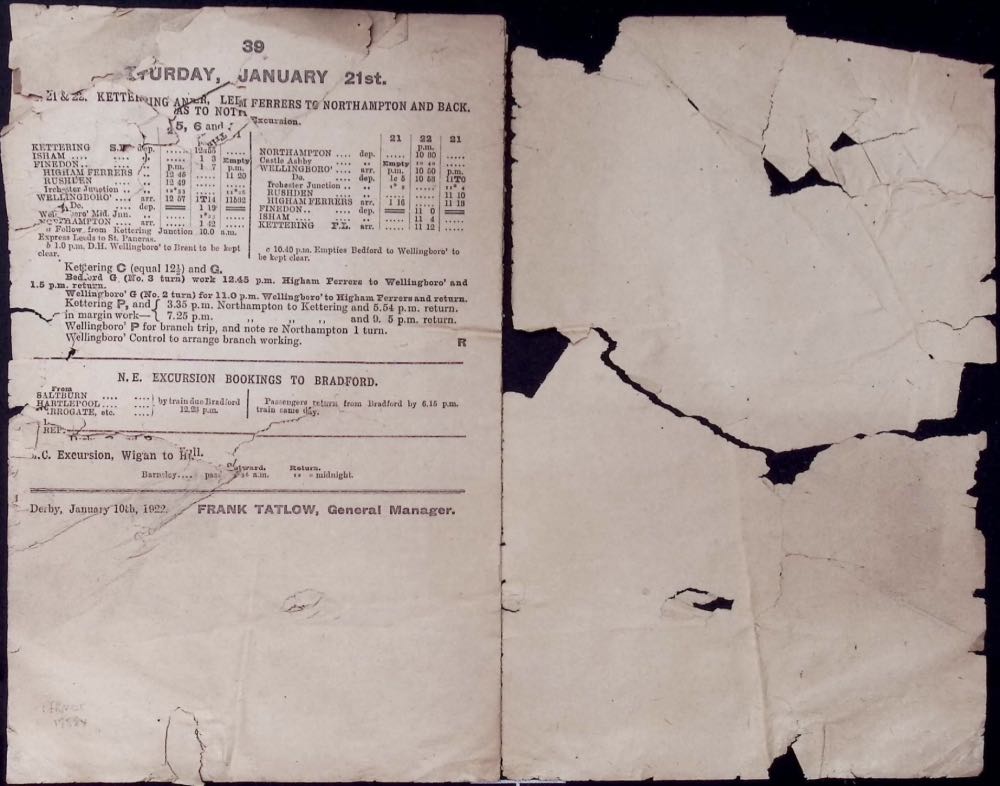 39
TURDAY, JANUARY 21st.
21 & 22. KETTERING FERRERS TO NORTHAMPTON AND BACK.
AS TO
5, 6 and
Excursion.
KETTERING dep. .....
ISHAM .... .... ..... 1 3 Empty
FINEDON.. .... p.m. 1 7 p.m.
HIGHAM FERRERS 12 45 ..... 11 20
RUSHDEN .... 12 49 .....
Irchester Junction ..
WELLINGBORO' .... arr. 12 57 1T14
Do. .... dep. 1 19
Mid. Jun. ..
arr. ..... 1 42 .....
a Follow from Kettering Junction 10.0 a.m.
Express Leeds to St. Pancras.
b 1.0 p.m. D.H. Wellingboro' to Brent to be kept
clear.
21 22 21
p.m.
NORTHAMPTON .... dep. ..... 10 30 .....
Castle Ashby .... Empty
WELLINGBORO' .... arr. p.m. 10 50 p.m.
Do. dep. 10 53 11T0
Irchester Junction ..
RUSHDEN .... ..... 11 10
HIGHAM FERRERS arr. 1 16 ..... 11 13
FINEDON.. .... dep. 11 0
ISHAM .... .... 11 4
KETTERING arr. 11 12 .....
c 10.40 p.m. Empties Bedford to Wellingboro' to
be kept clear.
Kettering C (equal 12½) and G.
Bedford G (No. 3 turn) work 12.45 p.m. Higham Ferrers to Wellingboro' and
1.5 p.m. return.
Wellingboro' G (No. 2 turn) for 11.0 p.m. Wellingboro' to Higham Ferrers and return.
Kettering P, and { 3.35 p.m. Northampton to Kettering and 5.54 p.m. return.
in margin work— { 7.25 p.m. ,, ,, ,, and 9. 5 p.m. return.
Wellingboro' P for branch trip, and note re Northampton 1 turn.
Wellingboro' Control to arrange branch working.
R
N. E. EXCURSION BOOKINGS TO BRADFORD.
From
SALTBURN .... ....
HARTLEPOOL .... ....
HARROGATE, etc. ....
by train due Bradford
12.23 p.m.
Passengers return from Bradford by 6.15 p.m.
train same day.
REP.
.C. Excursion, Wigan to Hull.
Outward. Return.
Barnsley.... a.m. midnight.
Derby, January 10th, 1922.
FRANK TATLOW, General Manager.